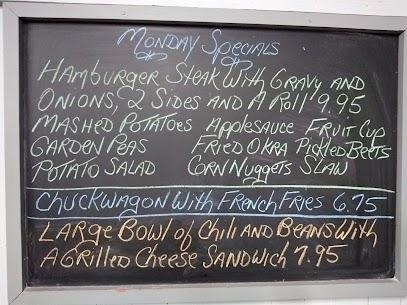 Monday Specials
Hamburger Steak With Gravy and
Onions, 2 Sides and A Roll 9.95
Mashed Potatoes Applesauce Fruit Cup
Garden Peas Fried Okra Pickled Beets
Potato Salad Corn Nuggets Slaw
Chuckwagon With French Fries 6.75
Large Bowl of Chili and Beans With
A Grilled Cheese Sandwich 7.95